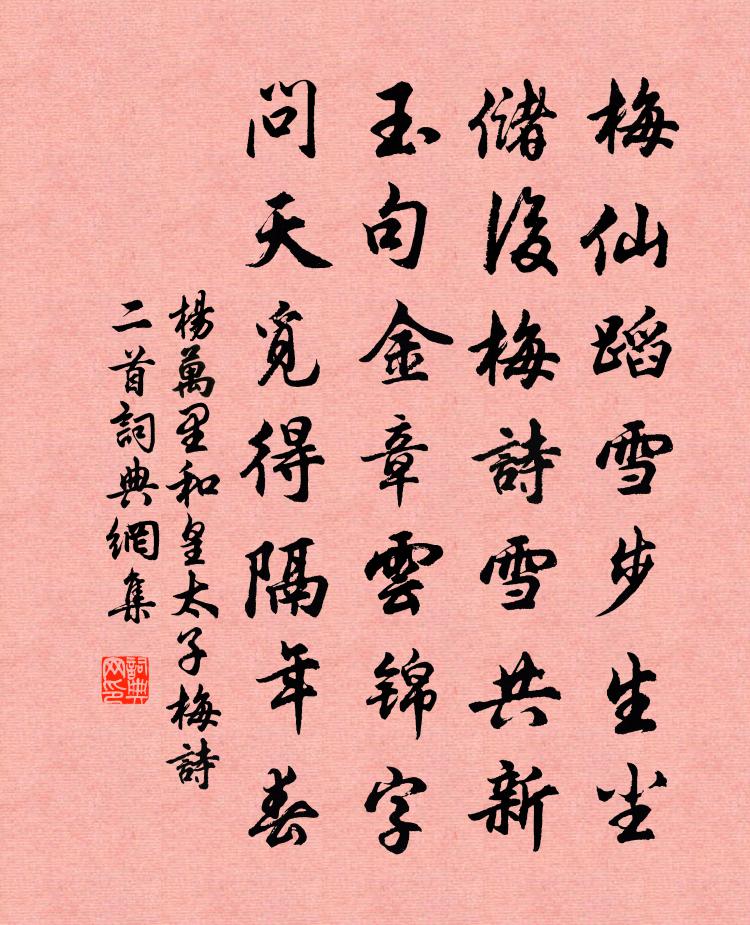 梅仙蹈雪步生尘
儲後梅詩雪共新
玉句金章雲锦字
問天覓得隔年春
楊萬里和皇太子梅詩
二首詞典網集
詞典网印